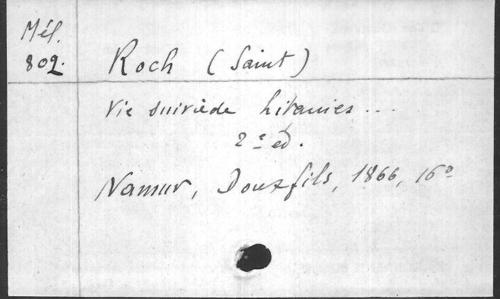 Mél.
802.
Roch (Saint)
Vie suivie de litanies...
2e ed.
Namur, Douxfils, 1866, 16o